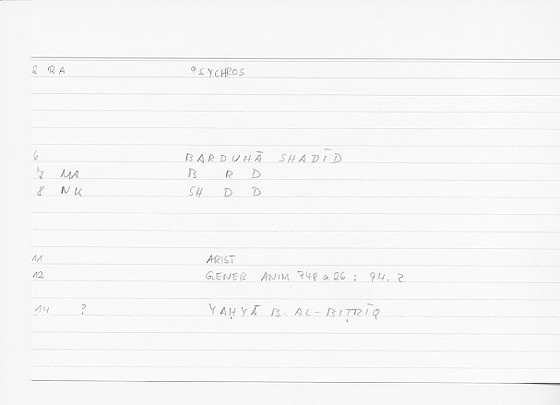 2 RA PSYCHROS
6 BARDUHĀ SHADĪD
7 MA B R D
8 NK SH D D
11 ARIST
12 GENER ANIM 748 a 26 ; 94. 2
14 ? YAḤYĀ B. AL-BIṬRĪQ